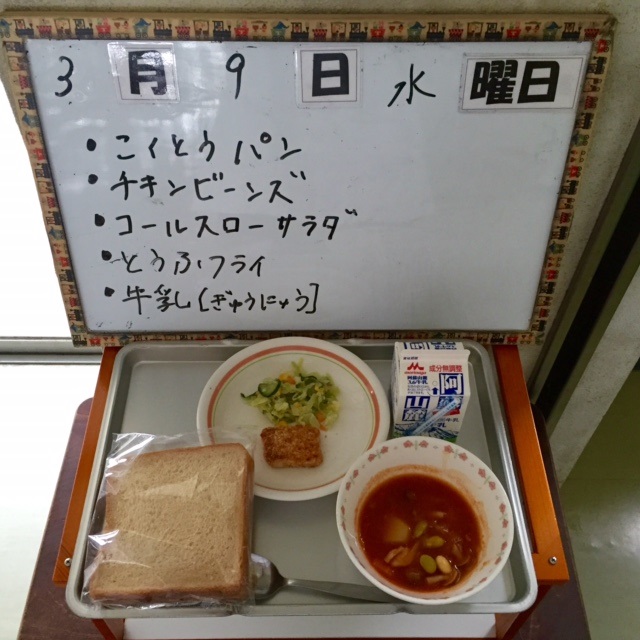 3月9日 水曜日
・こくとうパン
・チキンビーンズ
・コールスローサラダ
・とうふフライ
・牛乳[ぎゅうにゅう]
成分無調整